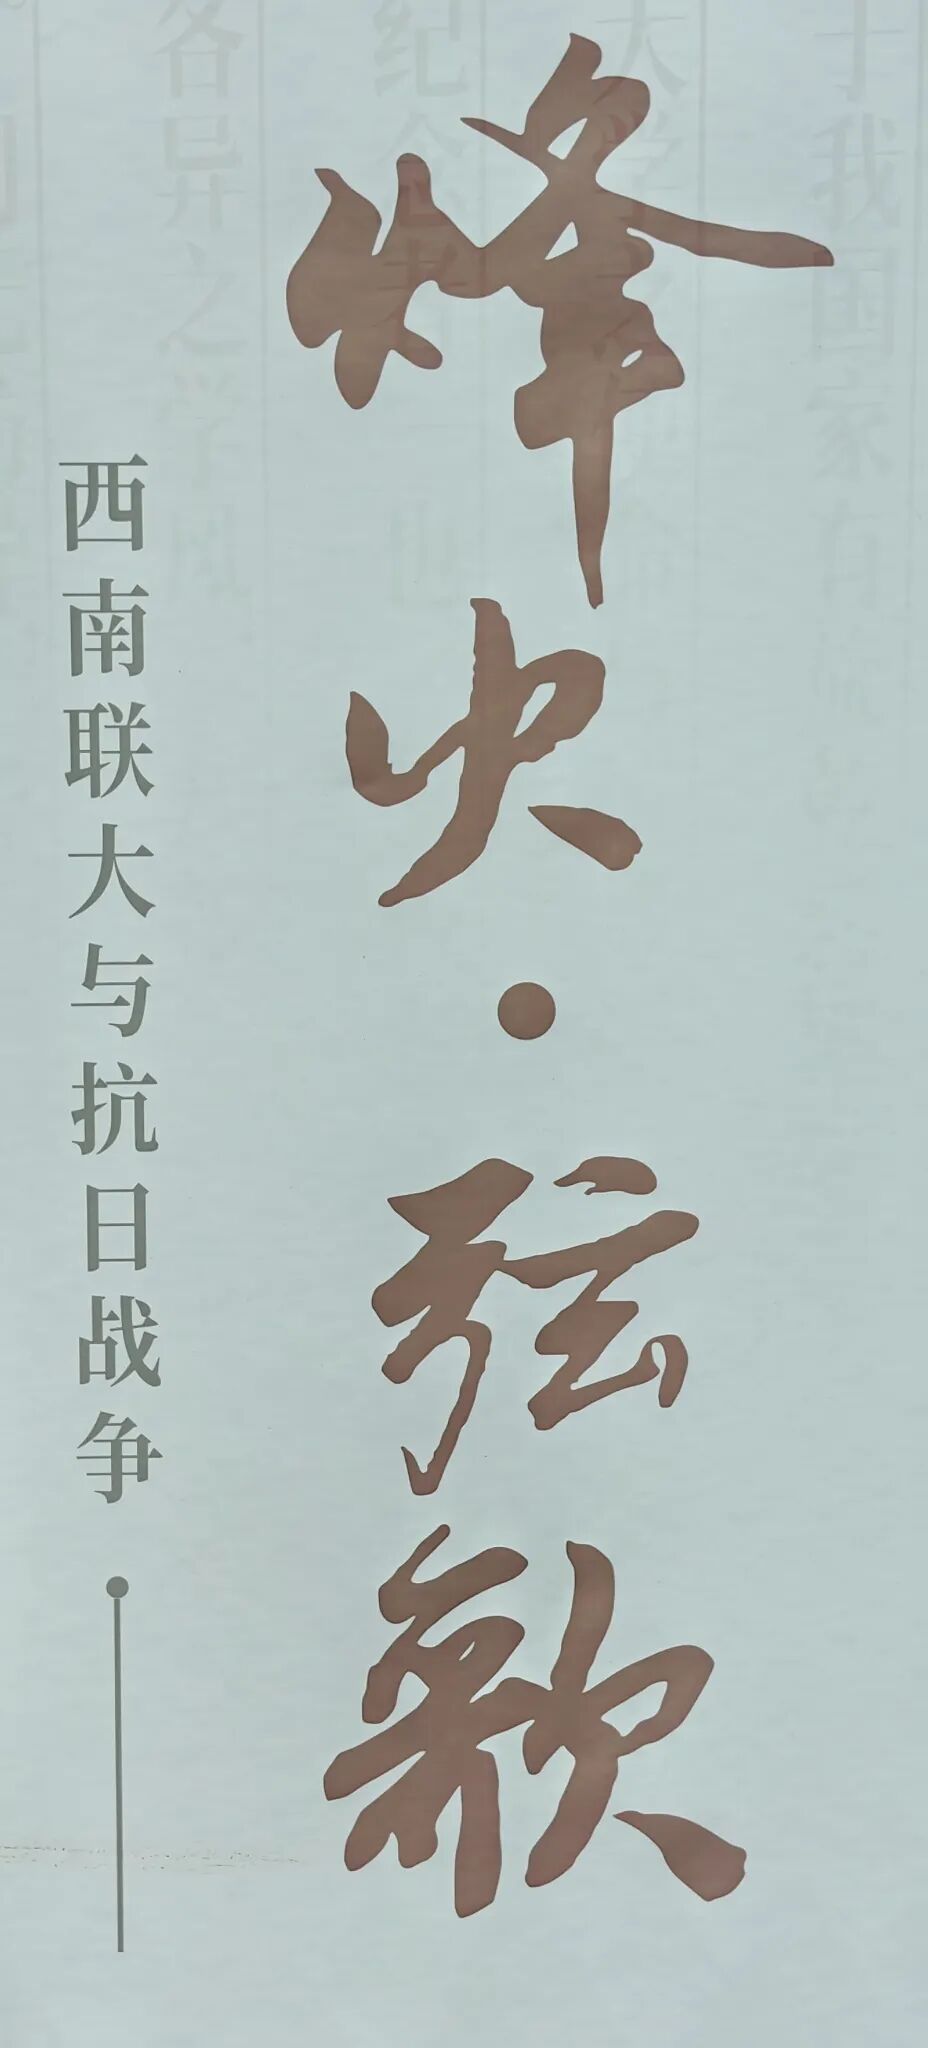 烽火·弦歌
西南联大与抗日战争